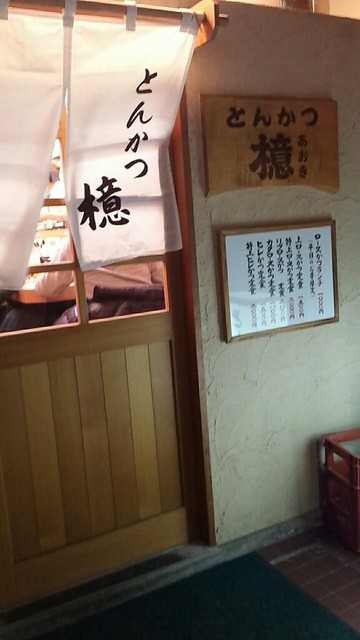 とんかつ
檍
とんかつ
檍
あおき
ロースかつランチ
上ロースかつ定食
特上ロースかつ定食
リブロースかつ定食
カタロースかつ定食
ヒレかつ定食
特上ヒレかつ定食